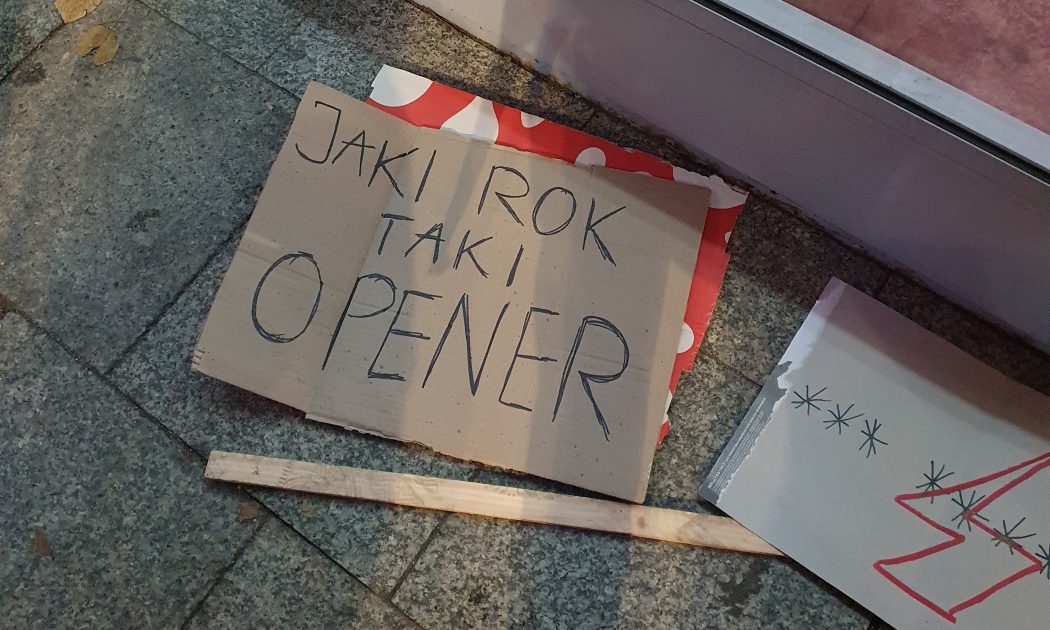 JAKI ROK
TAKI
OPENER
***
*****